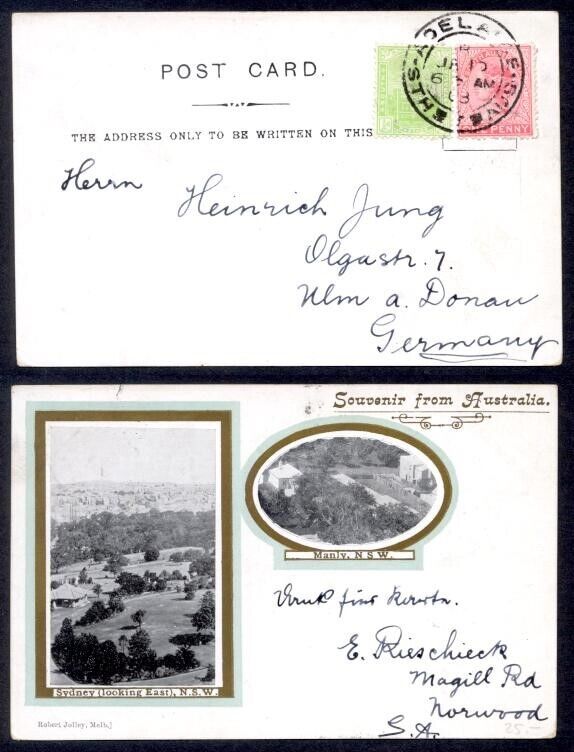 POST CARD.
THE ADDRESS ONLY TO BE WRITTEN ON THIS
ADELAIDE
6 AM
PENNY
Herrn
Heinrich Jung
Olgastr. 7.
Ulm a. Donau
Germany
Souvenir from Australia.
Manly, N.S.W.
Sydney (looking East), N.S.W.
E. Rieschieck
Magill Rd
Norwood
S.A.
Robert Jolley, Melb.]
25.-